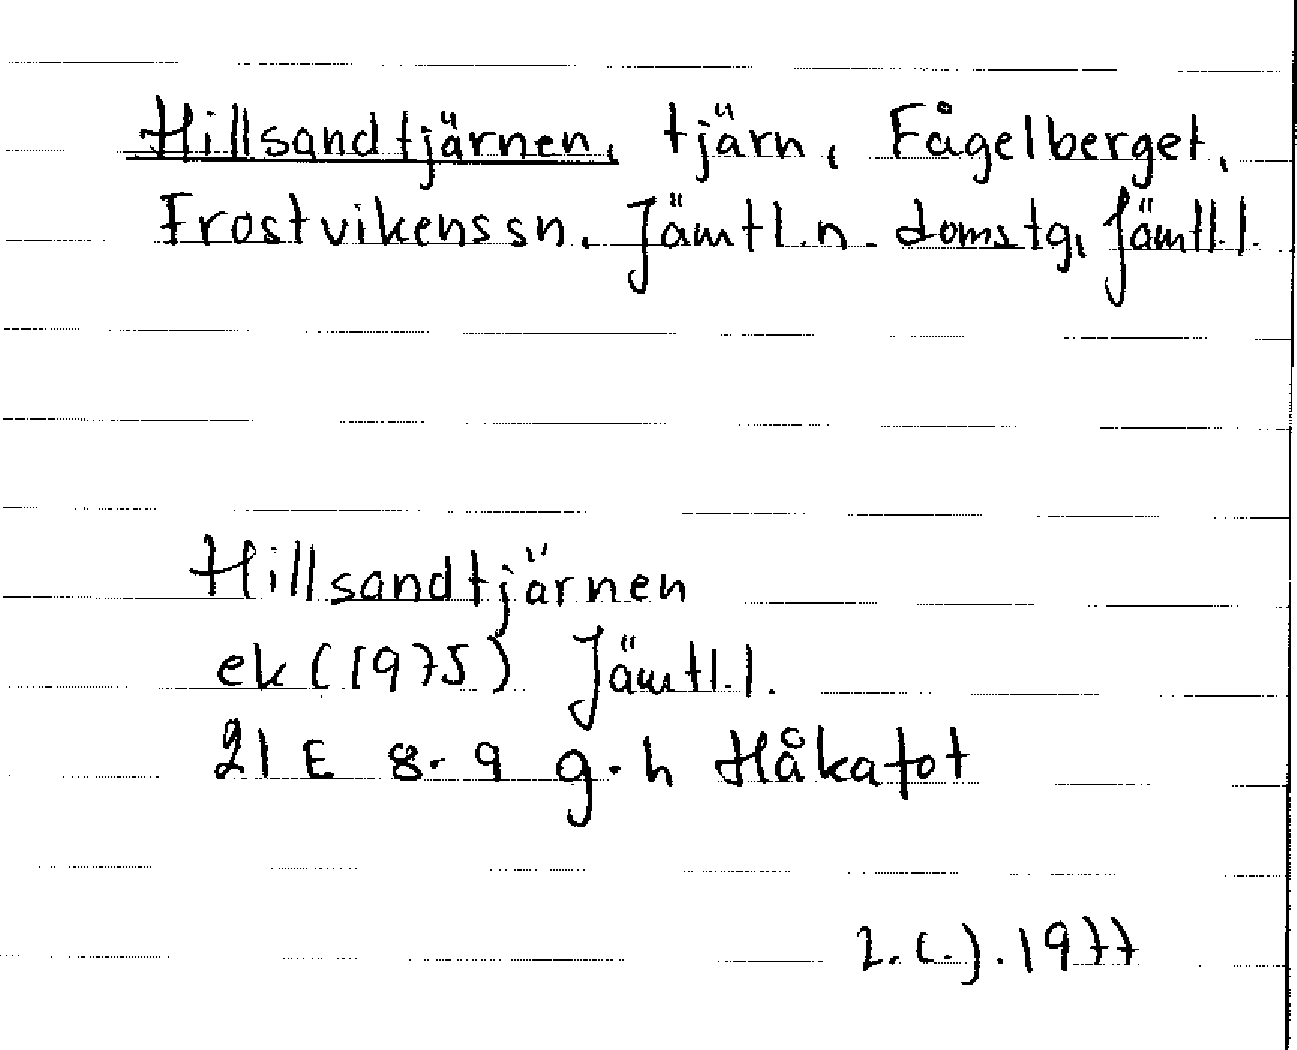 Hillsandtjärnen, tjärn, Fågelberget,
Frostvikens sn. Jämtl. n. domstg, Jämtl.l.
Hillsandtjärnen
ek (1975) Jämtl.l.
21 E 8-9 g-h Håkafot
1977